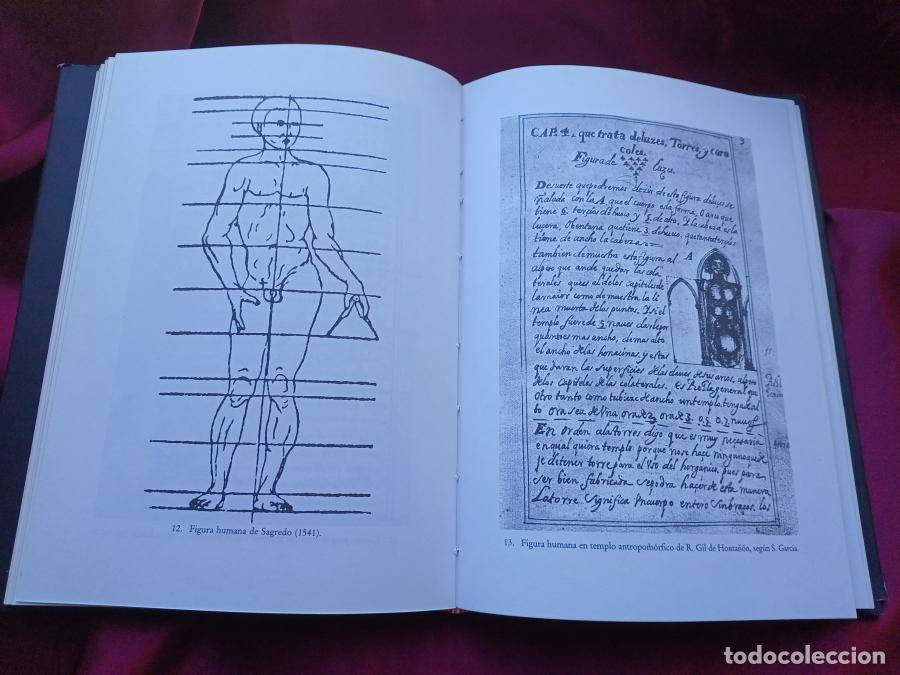 12. Figura humana de Sagredo (1541).
3
CAP. 4. que trata deluzes, Torres, y cara
coles.
Figura de Cazu.
De suerte que podremos dezir de esta figura
ñalada con la A que el cuerpo es la forma, O ancu que
tiene 6 tercias de hueco y de alto, y la cabeza es la
lucera, O bentana que tiene 3 de hueco, que tantas tercias
tiene de ancho la cabeza
tambien demuestra esta figura al A
alpeso que ande quedar las cola
terales, que es al de los capiteles de
la maior como demuestra la li
nea muerta de los puntos. Y si el
templo fuere de 5 naues
mas ancho, demas alto
el ancho de las honacinas, y estas
quedaran las superficies de las claues de sus arcos, al peso
de los Capiteles de las colaterales. Es Regla general que
Otro tanto como tubiere de ancho un templo tenga de al
to ora sea de Una ora de 2 ora de 3. o. 5. o. 7. naues
En orden a las torres digo que es muy necesaria
en qual quiera templo porque no se hace ninguno que
je de tener torre para el Uso del horganico, pues para
ser bien fabricada se podra haçer de esta manera
La torre significa Un cuerpo entero sin braços, los
13. Figura humana en templo antropomórfico de R. Gil de Hontañón, según S. García.
todocoleccion